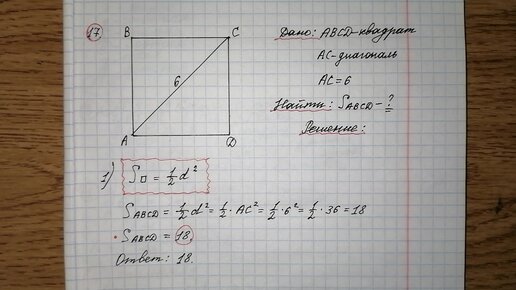 17
B C
6
A D
Дано: ABCD-квадрат
AC-диагональ
AC=6
Найти: SABCD-?
Решение:
1) S□ = 1/2 d²
SABCD = 1/2 d² = 1/2 · AC² = 1/2 · 6² = 1/2 · 36 = 18
SABCD = 18.
Ответ: 18.